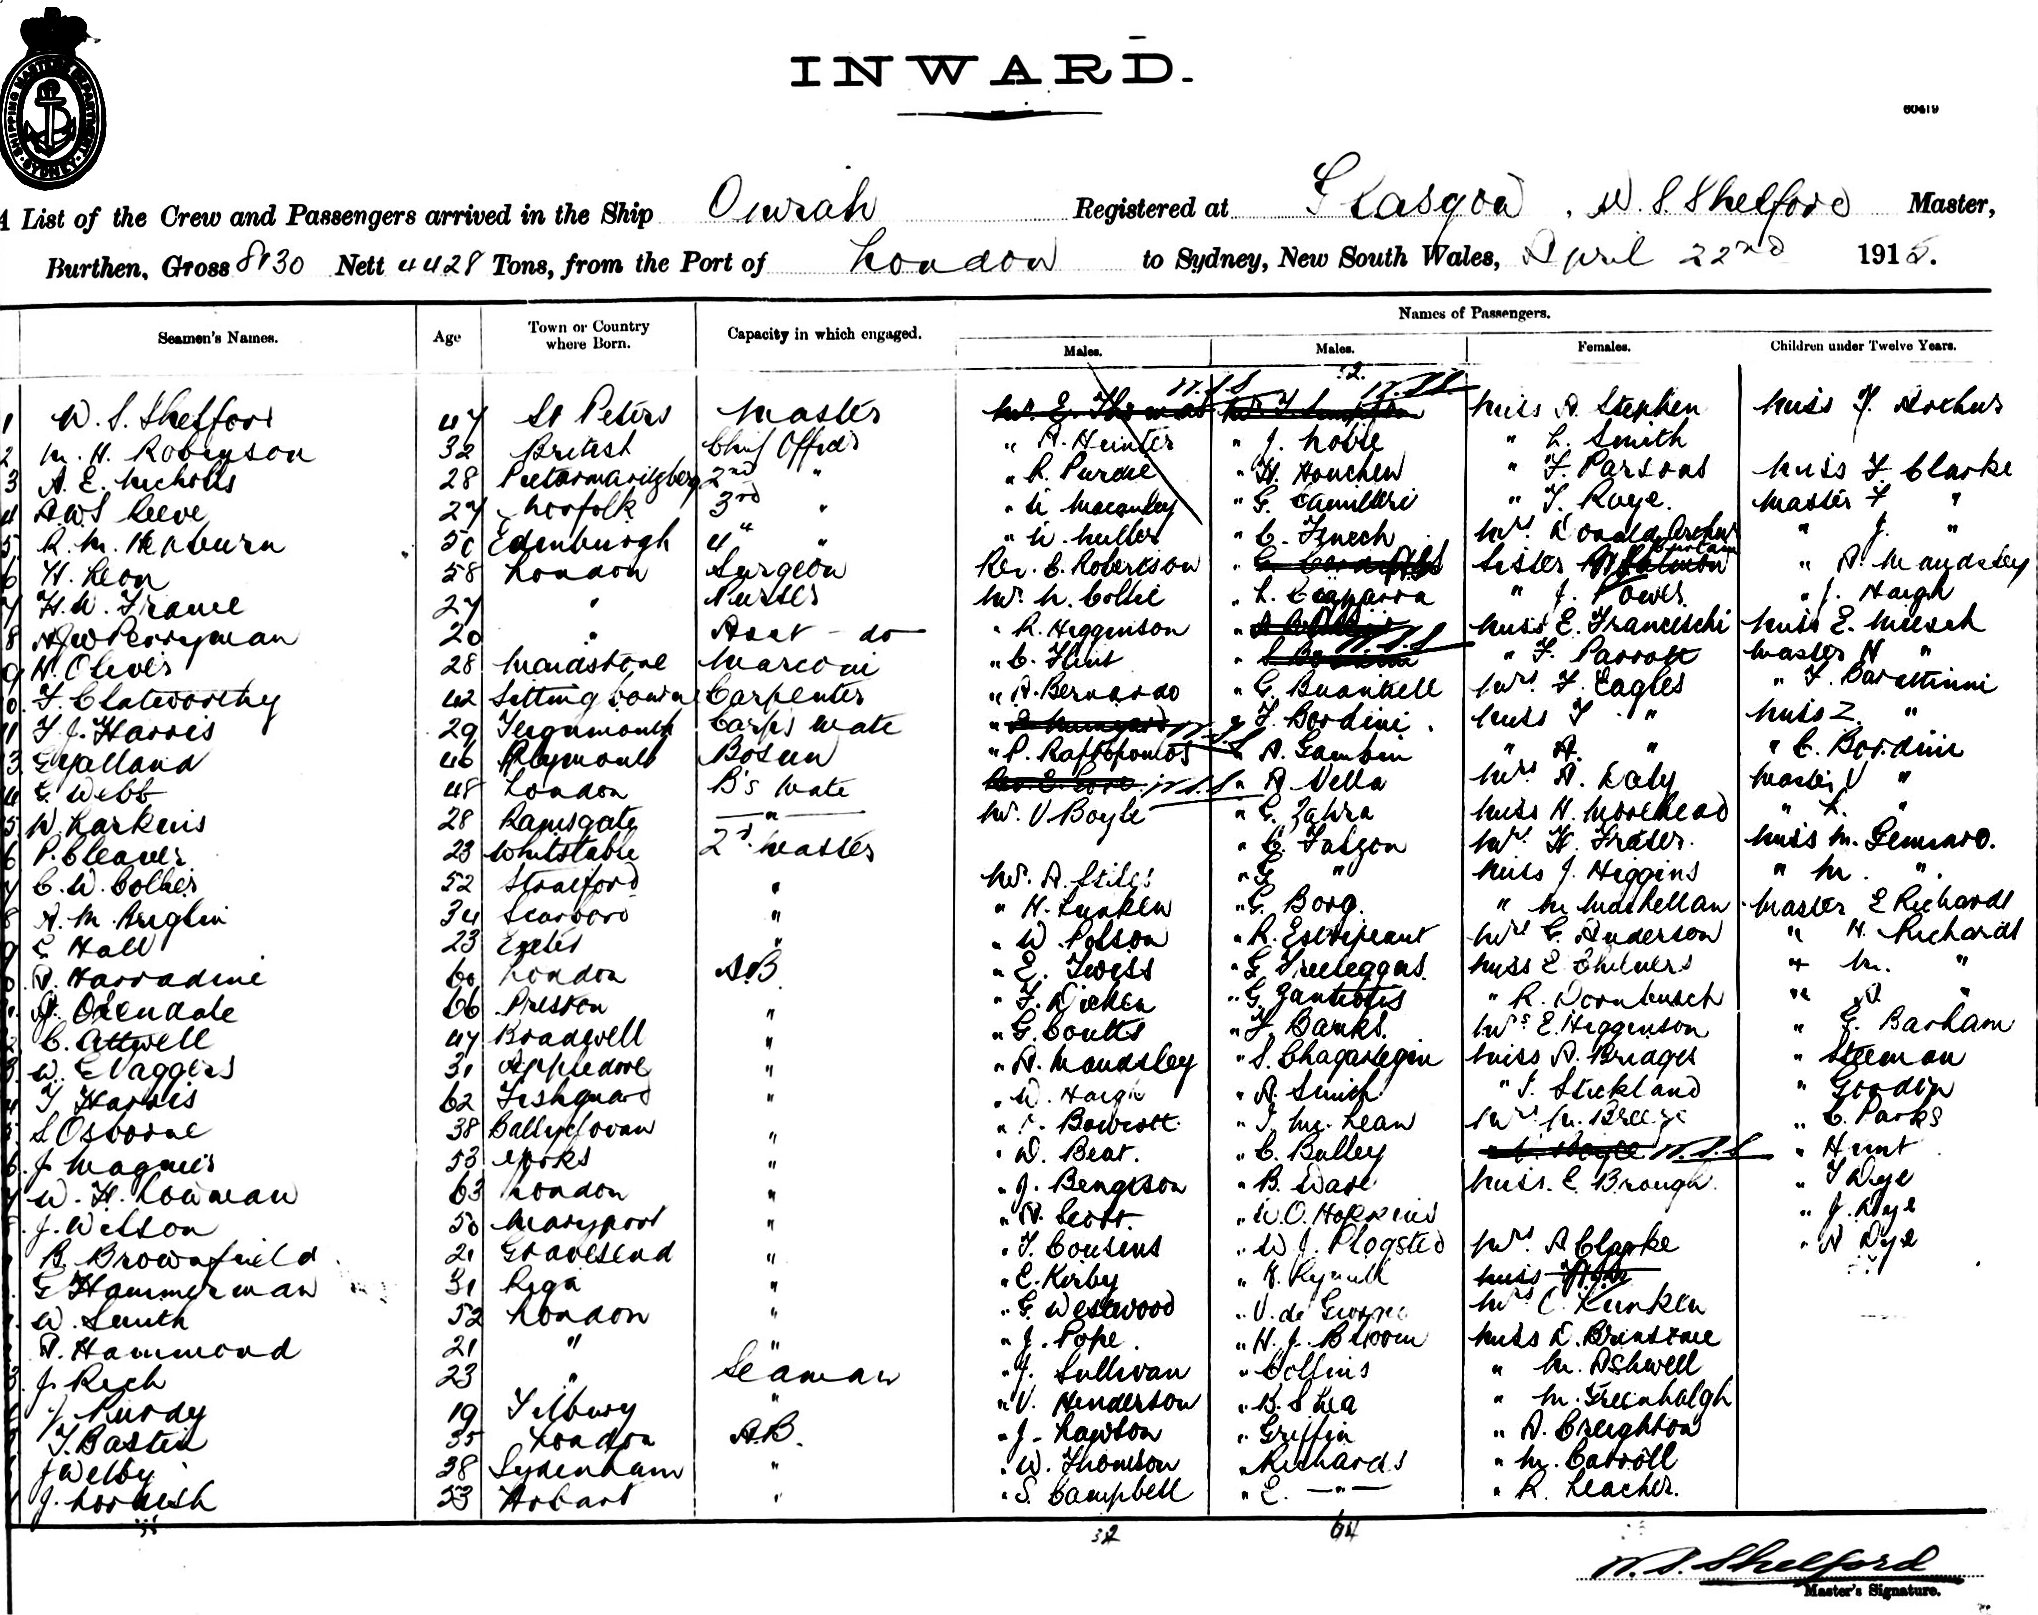 INWARD.
60419
SHIPPING MASTER'S DEPARTMENT · SYDNEY ·
A List of the Crew and Passengers arrived in the Ship Omrah Registered at Glasgow, W. S. Shelford Master,
Burthen, Gross 8130 Nett 4428 Tons, from the Port of London to Sydney, New South Wales, April 22nd 1915.
Names of Passengers.
Seamen's Names. Age Town or Country where Born. Capacity in which engaged. Males. Males. Females. Children under Twelve Years.
1 W. S. Shelford 47 St Peters Master Mr. E. Thomas Miss A. Stephen Miss F. Arthur
2 M. H. Robinson 32 British Chief Officer " A. Hunter " J. Noble " L. Smith
3 A. E. Nicholls 28 Pietermaritzberg 2nd " " R. Purdie " H. Houchen " F. Parsons Miss F. Clarke
4 AWS Reeve 27 Norfolk 3rd " " Macauley " G. Camilleri " F. Raye. Master F "
5 R. M. Hepburn 50 Edinburgh 4 " " W. Muller " C. Fenech Mrs Donald Arthur " J. "
6 H. Leon 58 London Surgeon Rev. C. Robertson Sister " A. Maudsley
7 H. W. Frame 27 " Purser Mr. M. Collie " L. Ciaparra " J. Power " J. Haigh
8 AJW Perryman 20 " Asst - do " R. Higginson Miss E. Franceschi Miss E. Miesch
9 H. Oliver 28 Maidstone Marconi " C. Flint " F. Parrott Master H "
10 F. Clatworthy 42 Sittingbourne Carpenter " A. Bernardo " G. Buankell Mrs. F. Eagles " F. Barettinni
11 F. J. Harris 29 Teignmouth Carps Mate W.S.S " F. Bordini. Miss F " Miss Z. "
13 G Yalland 46 Plymouth Bosun " P. Raftopoulos " A. Gambin " A. " " C. Bordini
14 G. Webb 48 London B's Mate W.S.S. " A. Vella Mrs A. Daly Master V "
15 W Larkins 28 Ramsgate " Mr. V Boyle " G. Zahra Miss H. Moorhead " L. "
16 P. Cleaver 23 Whitstable 2d. Master " C. Falzon Mrs H. Fraser. Miss M. Gennaro.
17 C. W. Collier 52 Stratford " Mr. A. Stiles " G " Miss J. Higgins " M. "
18 A. M. Briglin 34 Scarboro " " H. Lunken " G. Borg. " M MacLellan Master E Richards
19 C Hall 23 Exeter " " W. Polson " R. Estripeaut Mrs G. Anderson " H. Richards
A. Harradine 60 London A.B " E. Twiss " G Treleggas. Miss E Chilvers " M. "
A. Oxendale 66 Preston " " F. Dicken " G. Zantiotis " R. Dornbusch " A. "
C. Attwell 47 Bradwell " " G. Coutts " F. Banks. Mrs E. Higginson " G. Barham
W. E Vaggers 31 Appledore " " A. Maudsley " S. Chagaslegin Miss A. Bridges " Steeman
T Harris 62 Fishguard " " W. Haigh " A. Smith " F. Stickland " Goodwin
S Osborne 38 Ballyclovan " " Bowcott " J. McLean Mrs M. Breeze " C. Parks
J. Magner 53 Yorks " " W. Beat. " C. Bulley W.S.S " Hunt
W. H. Lowman 63 London " " J. Bengtson " B. Wade Miss. E. Brough. " F Dye
J. Wilson 50 Maryport " " A. Scott. " W.O. Hopkins " J. Dye
B. Brownfield 21 Gravesend " " F. Cousens " W. J. Plogsted Mrs. A Clarke " A Dye
G Hammerman 31 Riga " " E. Kirby " H. Miss
W. Smith 52 London " " G. Westwood " V. de Giorgio Mrs C. Lunken
A. Hammond 21 " " " J. Pope. " H. J. Bloom Miss D. Brinstone
J. Rich 23 " Seaman " J. Sullivan " Collins " M. Ashwell
J. Purdy 19 Tilbury " " V. Henderson " B. Shea " M. Greenhalgh
T. Basted 35 London A.B. " J. Lawson " Griffin " A. Creighton
J Welby 38 Sydenham " " W. Thomson " Richards " M. Carroll
J. Cornish 53 Hobart " " S. Campbell " E. — " — " R. Leacher.
32 64
W. S. Shelford
Master's Signature.